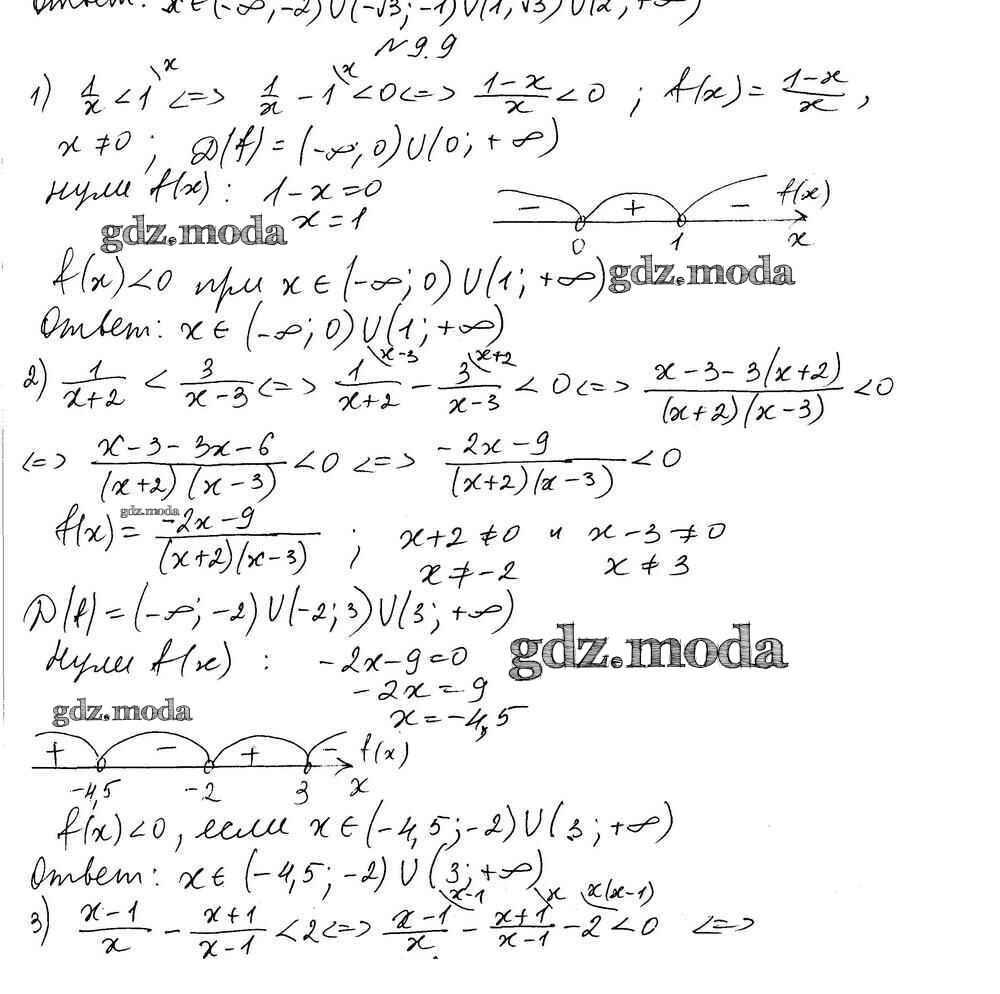 Ответ: x ∈ (-∞; -2) ∪ (-√3; -1) ∪ (1; √3) ∪ (2; +∞)
№9.9
1) 1/x < 1 \x <=> 1/x - 1 \x < 0 <=> (1-x)/x < 0 ; f(x) = (1-x)/x ,
x ≠ 0 ; D(f) = (-∞; 0) ∪ (0; +∞)
нули f(x): 1-x=0
x = 1
- + - f(x)
0 1 x
gdz.moda
f(x) < 0 при x ∈ (-∞; 0) ∪ (1; +∞)
gdz.moda
Ответ: x ∈ (-∞; 0) ∪ (1; +∞)
2) 1/(x+2) < 3/(x-3) <=> 1/(x+2) \x-3 - 3/(x-3) \x+2 < 0 <=> (x-3-3(x+2))/((x+2)(x-3)) < 0
<=> (x-3-3x-6)/((x+2)(x-3)) < 0 <=> (-2x-9)/((x+2)(x-3)) < 0
gdz.moda
f(x) = (-2x-9)/((x+2)(x-3)) ; x+2 ≠ 0 и x-3 ≠ 0
x ≠ -2 x ≠ 3
D(f) = (-∞; -2) ∪ (-2; 3) ∪ (3; +∞)
Нули f(x) : -2x-9=0
gdz.moda
-2x = 9
x = -4,5
gdz.moda
+ - + - f(x)
-4,5 -2 3 x
f(x) < 0, если x ∈ (-4,5; -2) ∪ (3; +∞)
Ответ: x ∈ (-4,5; -2) ∪ (3; +∞)
3) (x-1)/x - (x+1)/(x-1) < 2 <=> (x-1)/x \x-1 - (x+1)/(x-1) \x - 2 \x(x-1) < 0 <=>